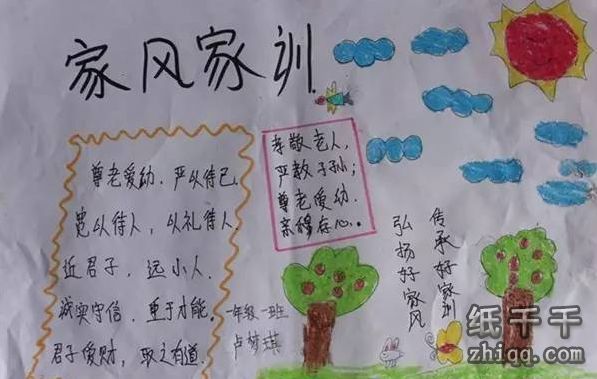 家风家训
尊老爱幼，严以待己
宽以待人，以礼待人
近君子，远小人
诚实守信，重于才能。
君子爱财，取之有道.
孝敬老人，
严教子孙；
尊老爱幼.
亲穆存心。
一年级一班
卢梦琪
传承好家训
弘扬好家风
纸千千
zhiqq.com